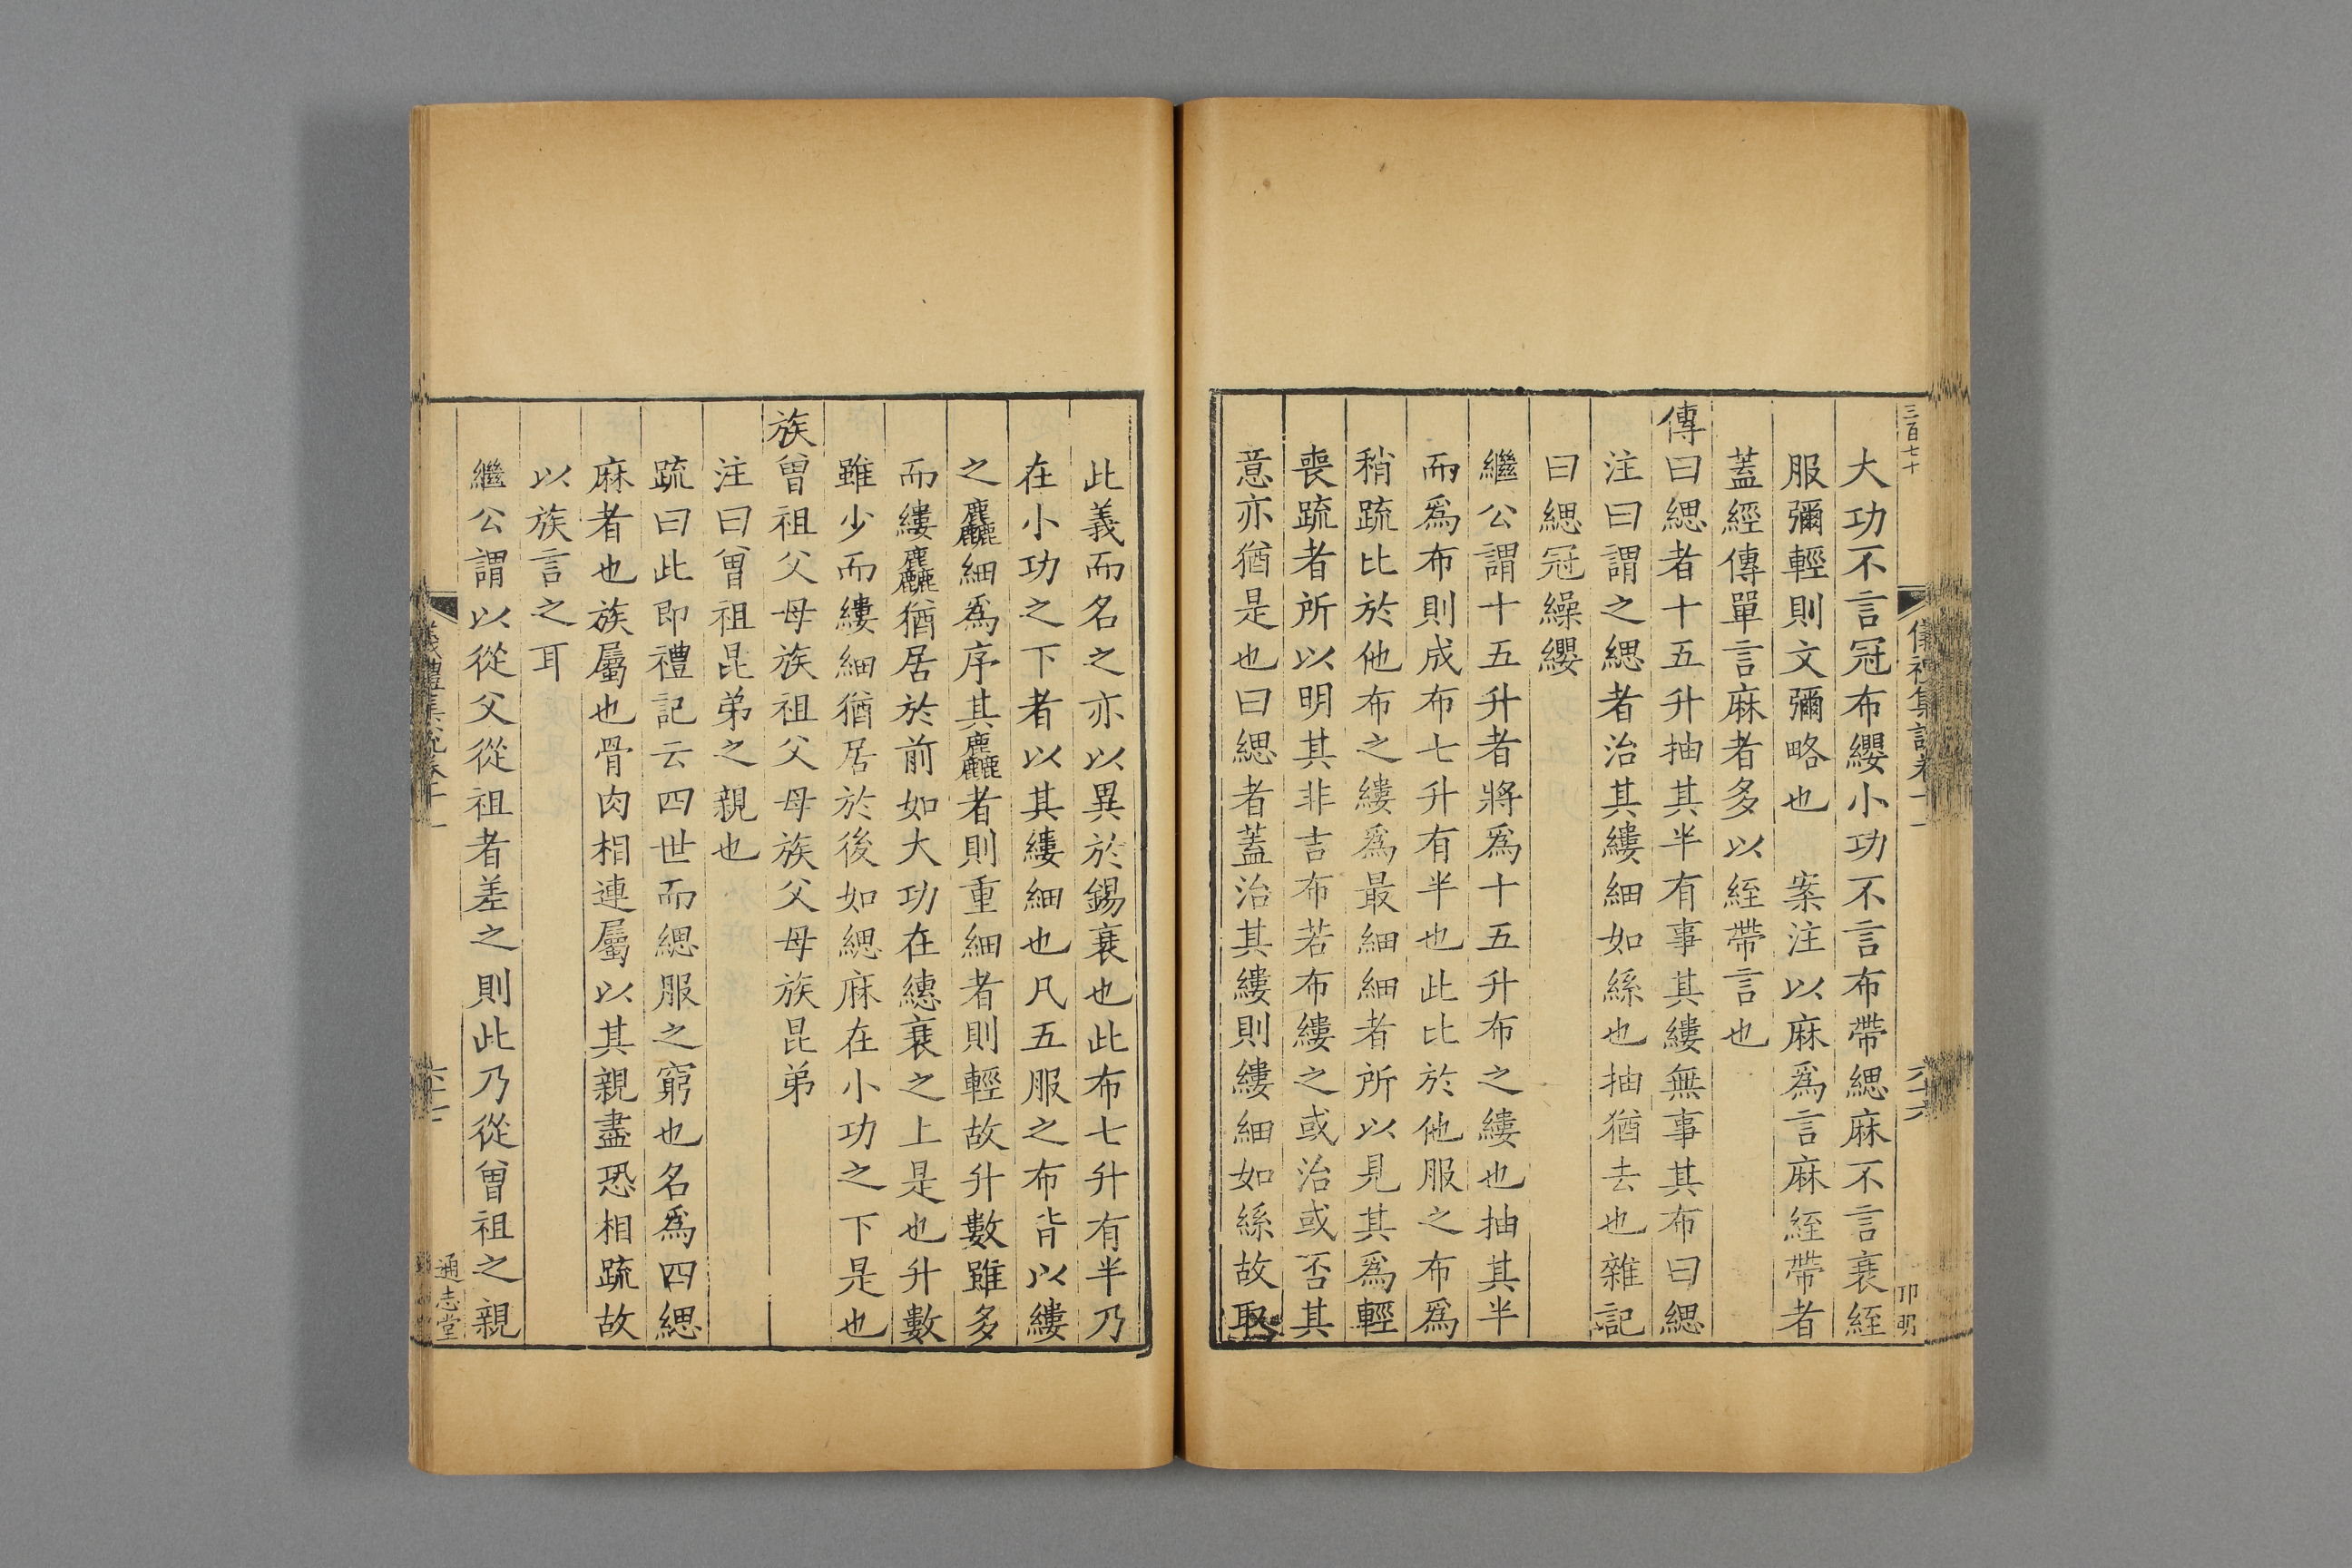 三百七十
儀禮集說卷十一
六十六
卭明
大功不言冠布纓小功不言布帶緦麻不言衰絰
服彌輕則文彌略也　案注以麻爲言麻絰帶者
蓋經傳單言麻者多以絰帶言也
傳曰緦者十五升抽其半有事其縷無事其布曰緦
注曰謂之緦者治其縷細如絲也抽猶去也雜記
曰緦冠繰纓
繼公謂十五升者將爲十五升布之縷也抽其半
而爲布則成布七升有半也此比於他服之布爲
稍疏比於他布之縷爲最細細者所以見其爲輕
喪疏者所以明其非吉布若布縷之或治或否其
意亦猶是也曰緦者蓋治其縷則縷細如絲故取
此義而名之亦以異於錫衰也此布七升有半乃
在小功之下者以其縷細也凡五服之布皆以縷
之麤細爲序其麤者則重細者則輕故升數雖多
而縷麤猶居於前如大功在繐衰之上是也升數
雖少而縷細猶居於後如緦麻在小功之下是也
族曾祖父母族祖父母族父母族昆弟
注曰曾祖昆弟之親也
疏曰此即禮記云四世而緦服之窮也名爲四緦
麻者也族屬也骨肉相連屬以其親盡恐相疏故
以族言之耳
繼公謂以從父從祖者差之則此乃從曾祖之親
儀禮集說卷十一
六十七
通志堂